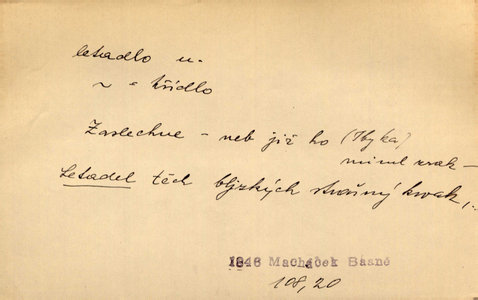 letadlo n.
~ = křídlo
Zaslechne – neb již ho (Ibyka)
minul zrak –
Letadel těch blýzkých strašný kwak,..
1846 Macháček Básně
108, 20